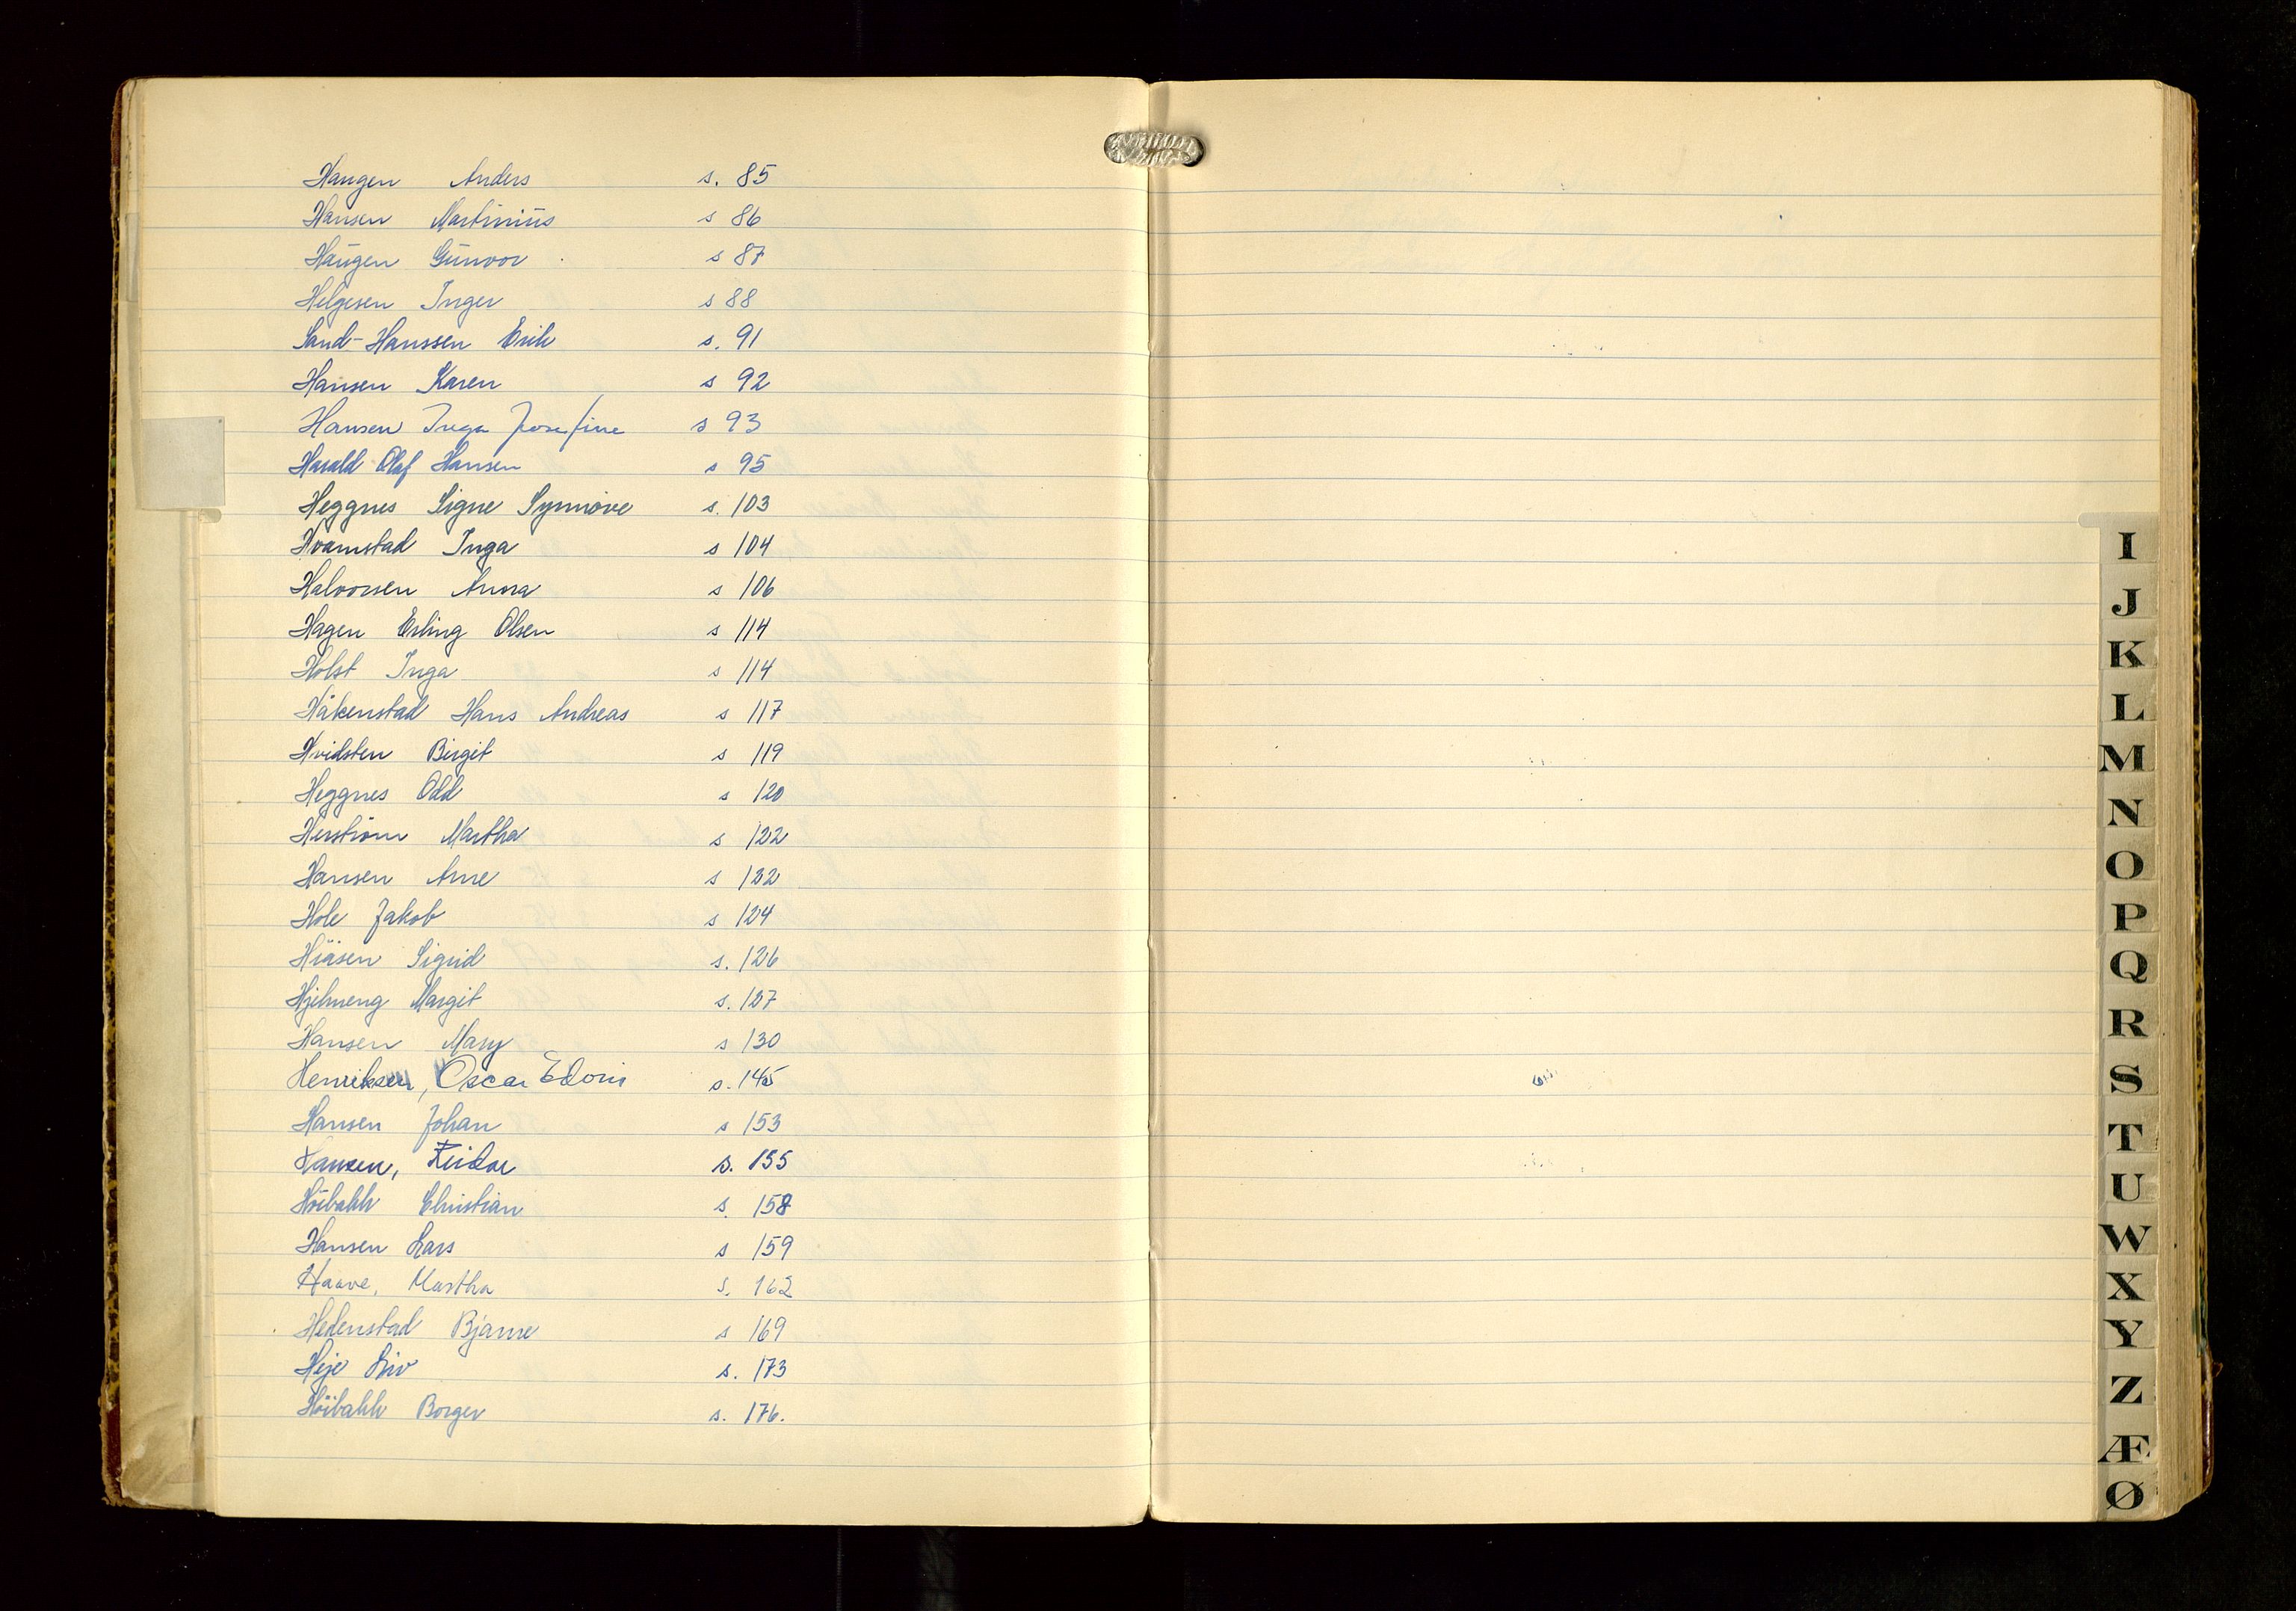 Haugen Anders s. 85
Hansen Martinius s 86
Haugen Gunvor s 87
Helgesen Inger s 88
Sand-Hanssen Erik s. 91
Hansen Karen s 92
Hansen Inga Josefine s 93
Harald Olaf Hansen s 95
Heggnes Signe Synnøve s. 103
Hvamstad Inga s 104
Halvorsen Anna s 106
Hagen Erling Olsen s 114
Holst Inga s 114
Håkenstad Hans Andreas s 117
Hvidsten Birgit s 119
Heggnes Odd s 120
Herstrøm Martha s 122
Hansen Arne s 122
Hole Jakob s 124
Hiåsen Sigrid s. 126
Hjelmeng Margit s. 127
Hansen Mary s 130
Henriksen, Oscar Edvin s. 145
Hansen Johan s 153
Hansen, Reidar s. 155
Høibakk Christian s. 158
Hansen Lars s 159
Haave, Martha s. 162
Hedenstad Bjarne s 169
Heje Liv s. 173
Høibakk Borger s. 176.
I
J
K
L
M
N
O
P
Q
R
S
T
U
W
X
Y
Z
Æ
Ø